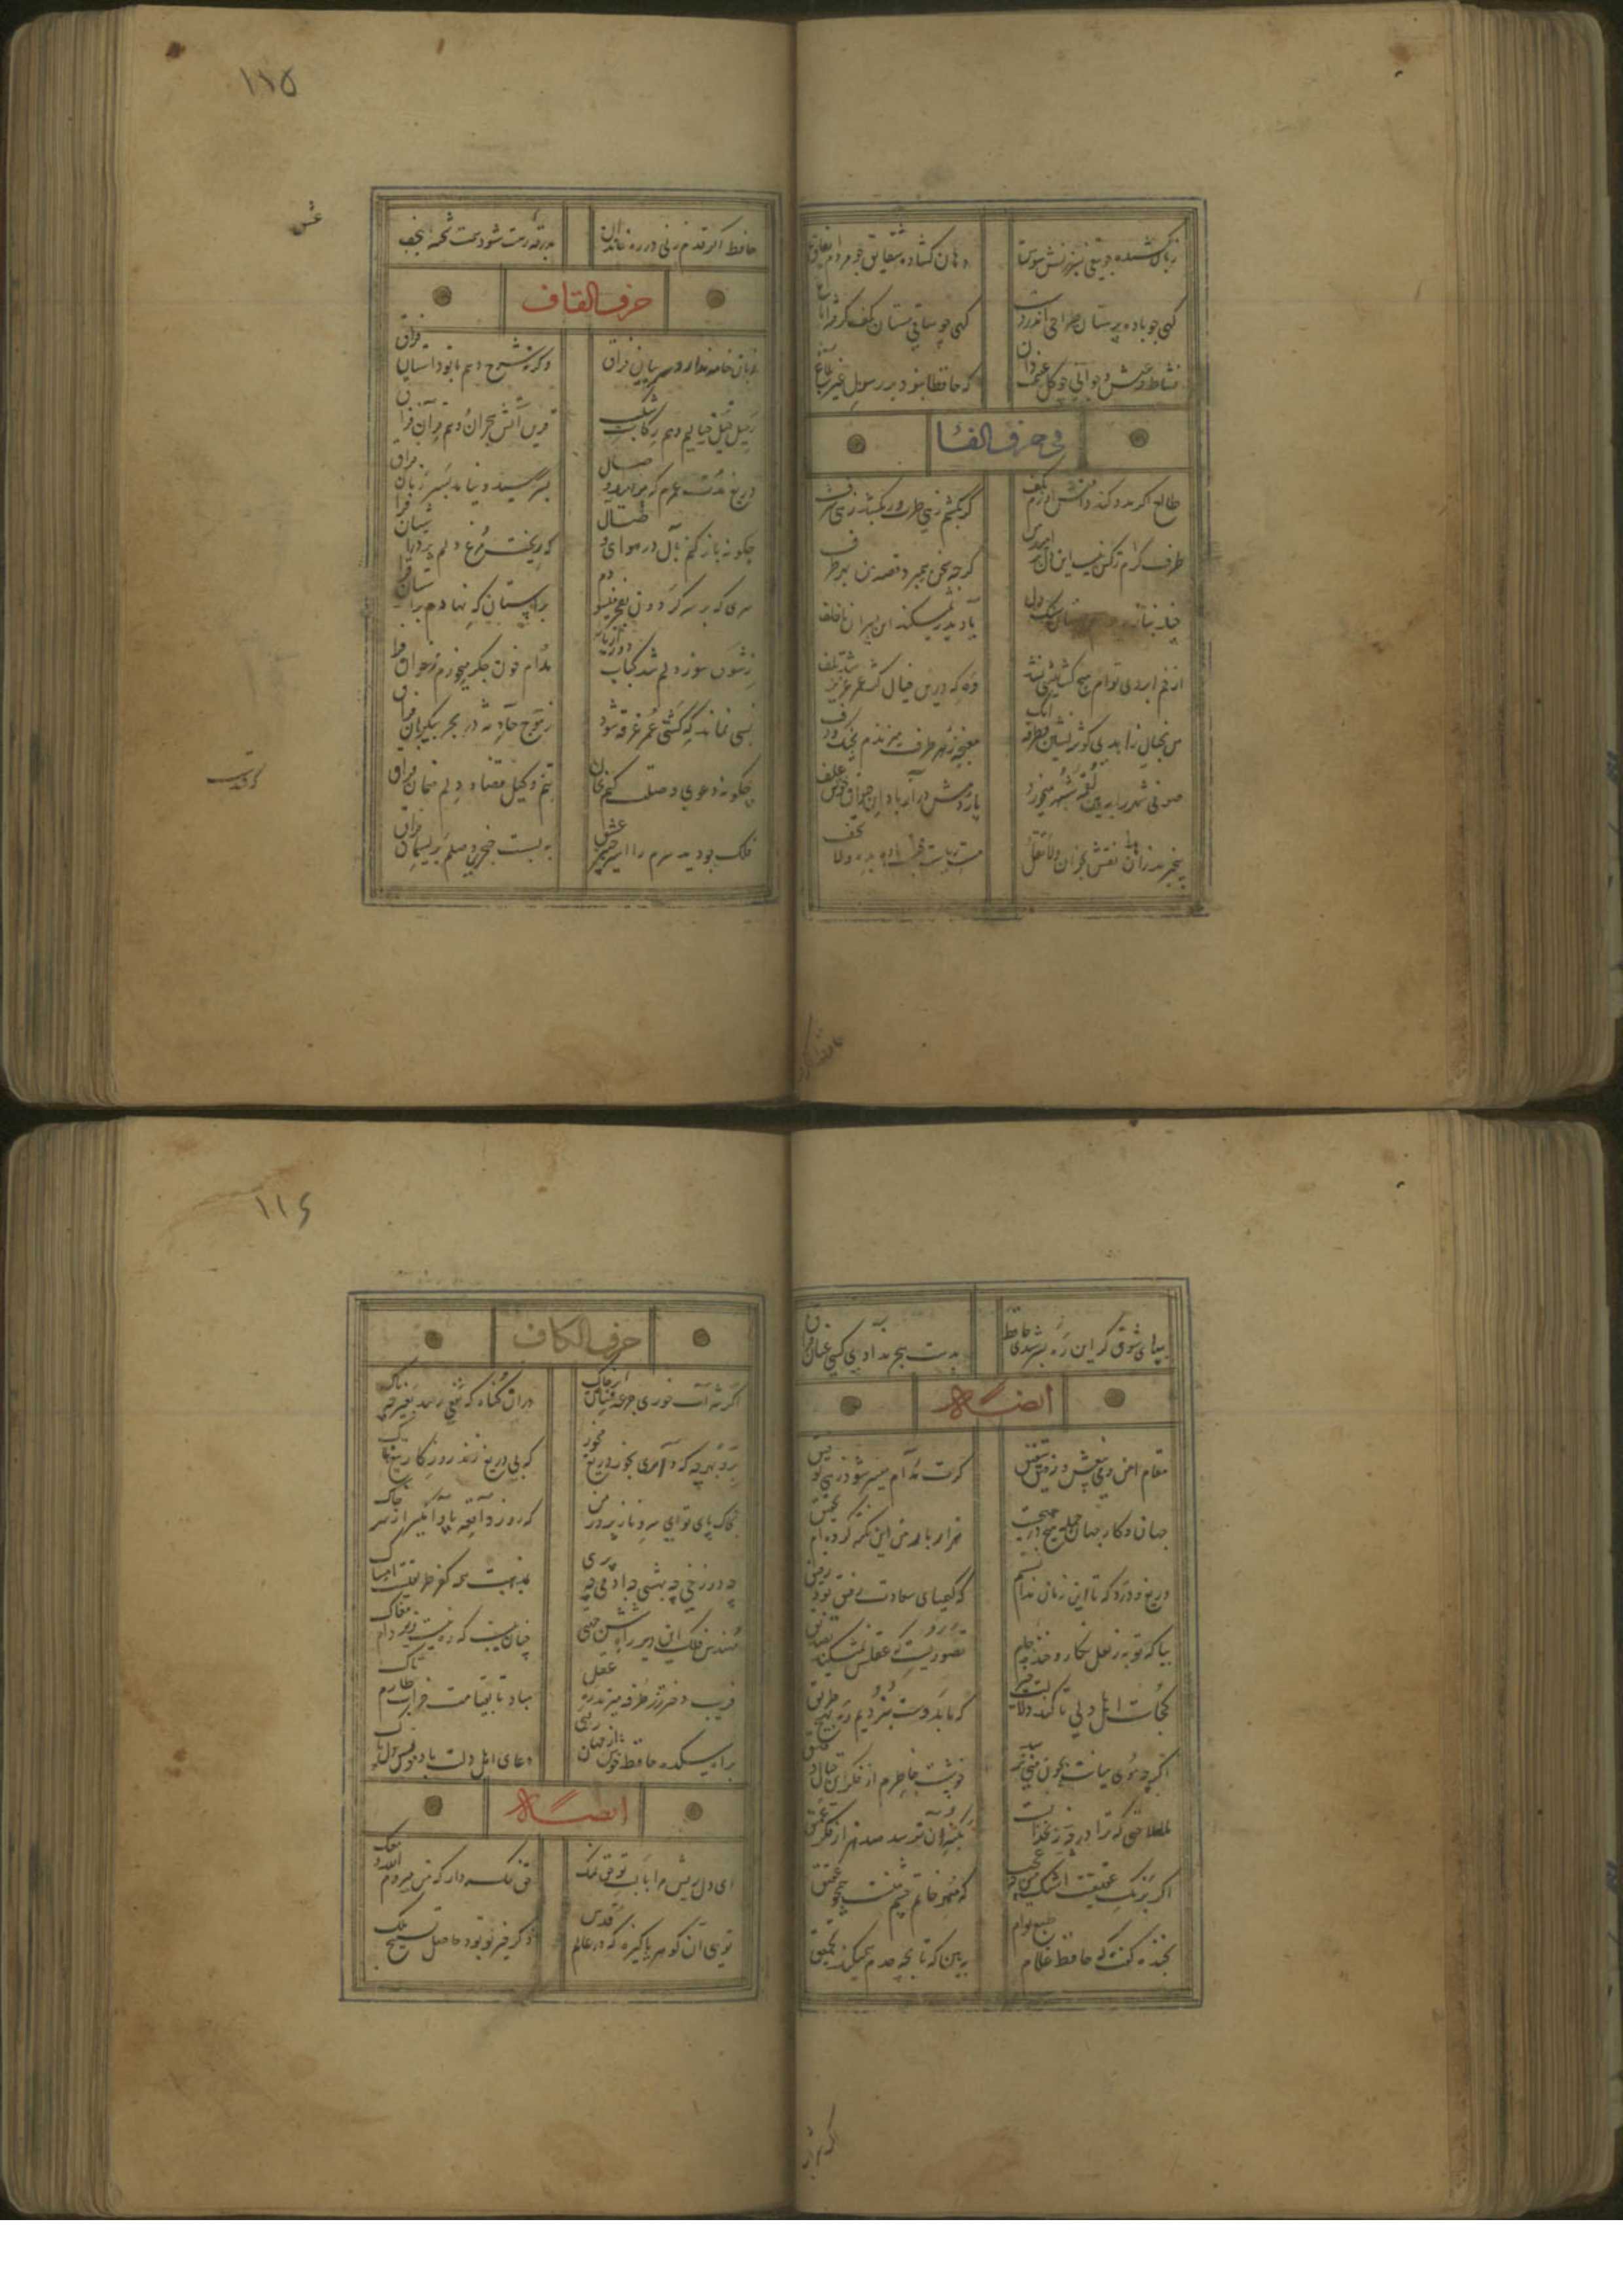 زبان کشیده چو تیغی بسرزنش سوسن
دهان گشاده شقایق چو مردم ایغاغ
یکی چو باده پرستان صراحی اندر دست
یکی چو ساقی مستان بکف گرفته ایاغ
نشاط و عیش و جوانی چو گل غنیمت دان
که حافظا نبود بر رسول غیر بلاغ
فی حرف الفا
طالع اگر مدد کند دامنش آورم بکف
گر بکشم زهی طرب ور بکشد زهی شرف
طرف کرم ز کس نبست این دل پر امید من
گرچه سخن همی برد قصه من بهر طرف
چند بناز
یاد پدر نمیکنند این پسران ناخلف
از خم ابروی توام هیچ گشایشی نشد
وه که درین خیال کج عمر عزیز شد تلف
من بخیال زاهدی گوشه نشین و طرفه آنک
مغبچه ز هر طرف میزندم بچنگ و دف
صوفی شهر را ببین لقمه شبهه میخورد
پاردمش دراز باد این حیوان خوش علف
بیخبرند زاهدان نقش بخوان ولا تقل
مست ریاست محتسب باده بده ولا تخف
۱۱۵
حافظ اگر قدم زنی در ره خاندان
بدرقه رهت شود همت شحنه نجف
حرف القاف
زبان خامه ندارد سر بیان فراق
وگرنه شرح دهم با تو داستان فراق
رفیق خیل خیالیم و هم رکاب شکیب
قرین آتش هجران و هم قران فراق
دریغ مدت عمرم که بر امید وصال
بسر رسید و نیامد بسر زمان فراق
چگونه باز کنم بال در هوای وصال
که ریخت مرغ دلم پر در آشیان فراق
سری که بر سر گردون بفخر میسودم
براستان که نهادم بر آستان فراق
ز سوز شوق دلم شد کباب دور از یار
مدام خون جگر میخورم ز خوان فراق
بسی نماند که کشتی عمر غرقه شود
ز موج حادثه در بحر بیکران فراق
چگونه دعوی وصلت کنم بجان
تنم وکیل قضا و دلم ضمان فراق
فلک چو دید سرم را اسیر چنبر عشق
ببست گردن صبرم بریسمان فراق
بپای شوق گر این ره بسر شدی حافظ
بدست هجر ندادی کسی عنان فراق
ایضا له
مقام امن و می بیغش و رفیق شفیق
گرت مدام میسر شود زهی توفیق
جهان و کار جهان جمله هیچ در هیچست
هزار بار من این نکته کرده ام تحقیق
دریغ و درد که تا این زمان ندانستم
که کیمیای سعادت رفیق بود رفیق
بیا که توبه ز لعل نگار و خنده جام
تصوریست که عقلش نمیکند تصدیق
کجاست اهل دلی تا کند دلالت خیر
که ما بدوست نبردیم ره بهیچ طریق
اگرچه موی میانت بچون منی نرسد
خوشست خاطرم از فکر این خیال دقیق
حلاوتی که ترا در چه زنخدانست
بکنه آن نرسد صد هزار فکر عمیق
اگر برنگ عقیقست اشک من چه عجب
که مهر خاتم چشم منست همچو عقیق
بخنده گفت که حافظ غلام طبع توام
ببین که تا بچه حدم همیکند تحمیق
۱۱۶
حرف الکاف
اگر شراب خوری جرعه فشان بر خاک
از آن گناه که نفعی رسد بغیر چه باک
برو بهرچه که داری بخور دریغ مخور
که بی دریغ زند روزگار تیغ هلاک
بخاک پای تو ای سرو نازپرور من
که روز واقعه پا وامگیر از سر خاک
چه دوزخی چه بهشتی چه آدمی چه پری
بمذهب همه کفر طریقتست امساک
مهندس فلکی این دیر شش جهتی
چنان ببست که ره نیست زیر دام مغاک
فریب دختر رز طرفه میزند ره عقل
مباد تا بقیامت خراب طارم تاک
براه میکده حافظ خوش از جهان رفتی
دعای اهل دلت باد مونس دل پاک
ایضا له
ای دل ریش مرا با لب تو حق نمک
حق نگه دار که من میروم الله معک
تویی آن گوهر پاکیزه که در عالم قدس
ذکر خیر تو بود حاصل تسبیح ملک